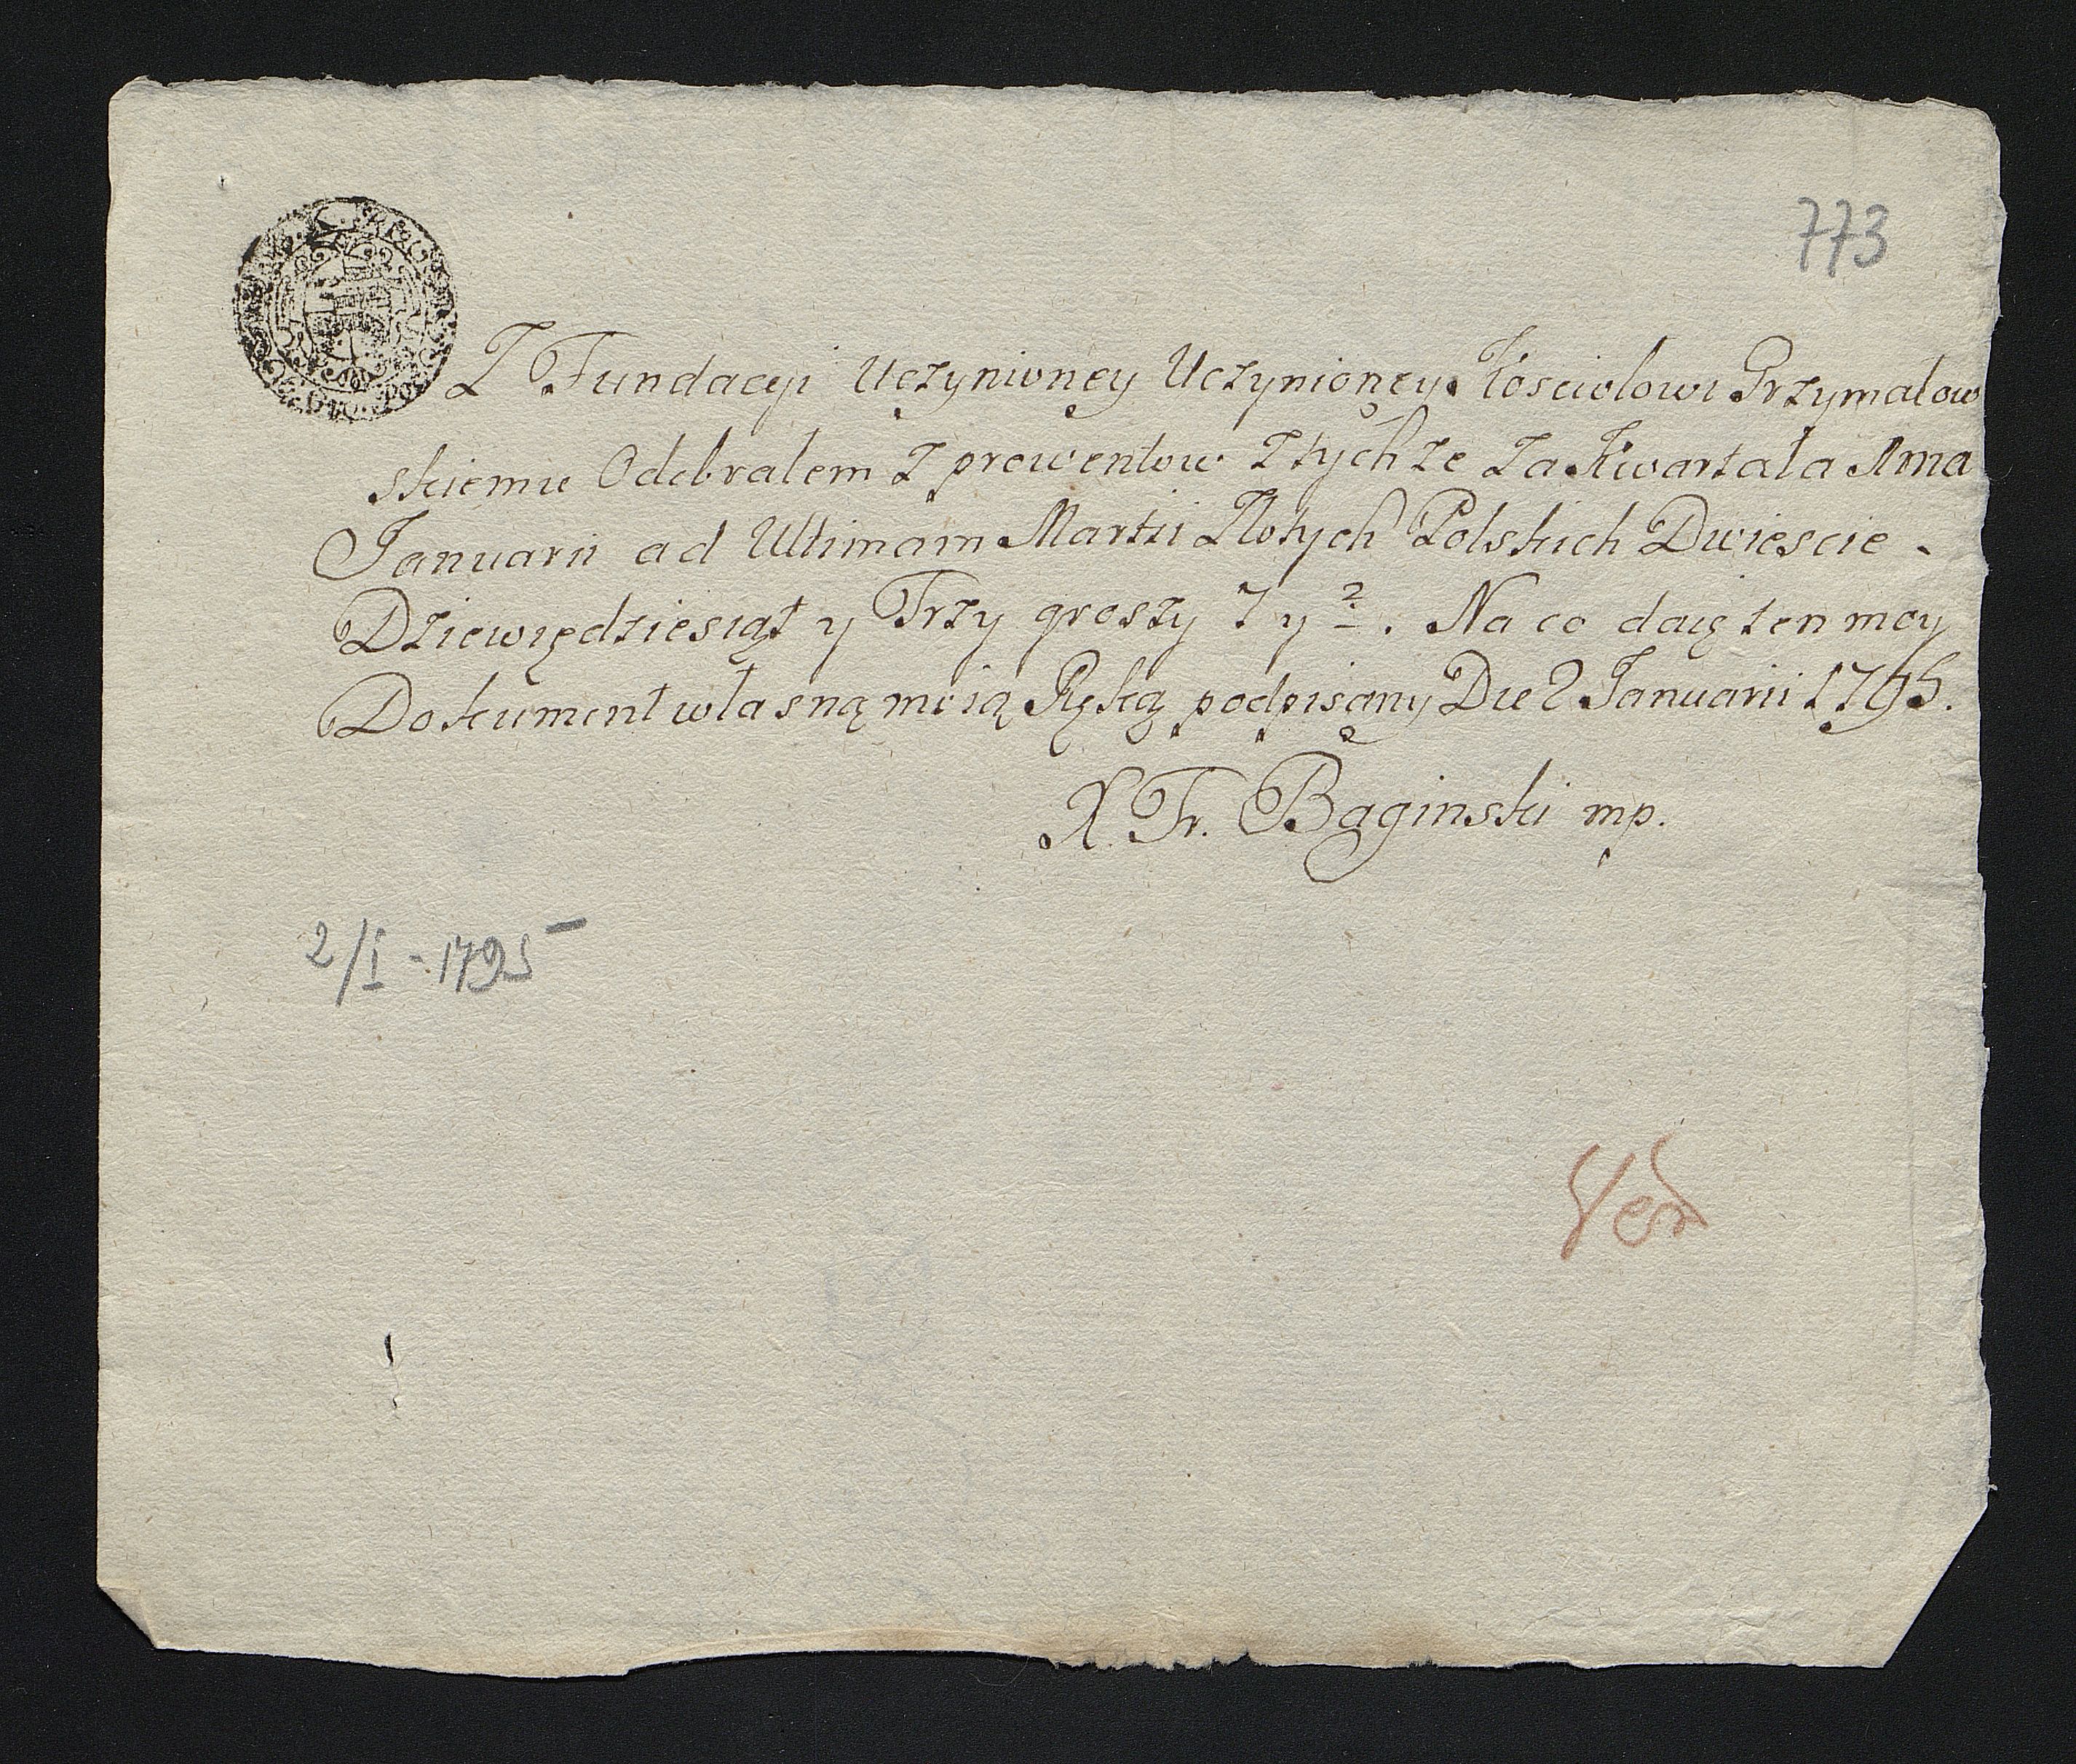 773
Z Fundacyi Uczynioney Uczynioney Kosciolowi Grzymałow
skiemu Odebralem z prowentow z tychze za Kwartał a 1ma
Januarii ad Ultimam Martii Zlotych Polskich Dwiescie -
Dziewiędziesiąt y Trzy groszy 7 y 2. Na co daię ten moy
Dokument własną moią Ręką podpisany Die 2 Januarii 1795.
X. Fr. Baginski mp.
2/I - 1795